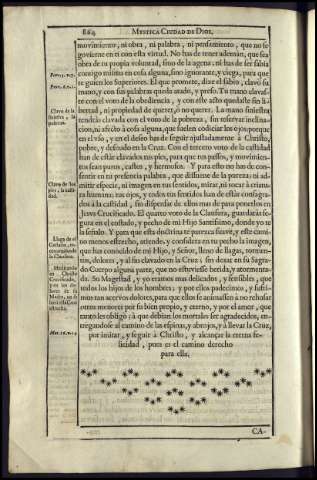 864 MYSTICA CIUDAD DE DIOS.
movimiento, ni obra, ni palabra, ni pensamiento, que no se
govierne en ti con esta virtud. No has de tener ademàn, que sea
obra de tu propia voluntad, sino de la agena: ni has de ser sabia
contigo misma en cosa alguna, sino ignorante, y ciega, para que
te guien los Superiores. El que promete, dize el Sabio, clavò su
mano, y con sus palabras queda atado, y preso. Tu mano clavas-
te con el voto de la obediencia, y con este acto quedaste sin li-
bertad, ni propiedad de querer, ò no querer. La mano siniestra
tendràs clavada con el voto de la pobreza, sin reservar inclina-
cion, ni afecto à cosa alguna, que suelen codiciar los ojos; porque
en el uso, y en el deseo has de seguir ajustadamente à Christo,
pobre, y desnudo en la Cruz. Con el tercero voto de la castidad
han de estàr clavados tus pies, para que tus passos, y movimien-
tos sean puros, castos, y hermosos. Y para esto no has de con-
sentir en tu presencia palabra, que dissuene de la pureza: ni ad-
mitir especie, ni imagen en tus sentidos, mirar, ni tocar à criatu-
ra humana: tus ojos, y todos tus sentidos han de estàr consagra-
dos à la castidad, sin dispensar de ellos mas de para ponerlos en
Jesus Crucificado. El quarto voto de la Clausura, guardaràs se-
gura en el costado, y pecho de mi Hijo Santissimo, donde yo te
la señalo. Y para que esta doctrina te parezca suave, y este cami-
no menos estrecho, atiende, y considera en tu pecho la imagen,
que has conocido de mi Hijo, y Señor, lleno de llagas, tormen-
tos, dolores, y al fin clavado en la Cruz; sin dexar en su Sagra-
do Cuerpo alguna parte, que no estuviesse herida, y atormenta-
da. Su Magestad, y yo eramos mas delicados, y sensibles, que
todos los hijos de los hombres; y por ellos padecimos, y sufri-
mos tan acervos dolores, para que ellos se animassen à no rehusar
otros menores por su bien propio, y eterno, y por el amor, que
tanto les obligò: à que debian los mortales ser agradecidos, en-
tregandose al camino de las espinas, y abrojos, y à llevar la Cruz,
por imitar, y seguir à Christo, y alcançar la eterna fe-
licidad, pues es el camino derecho
para ella.
CA-